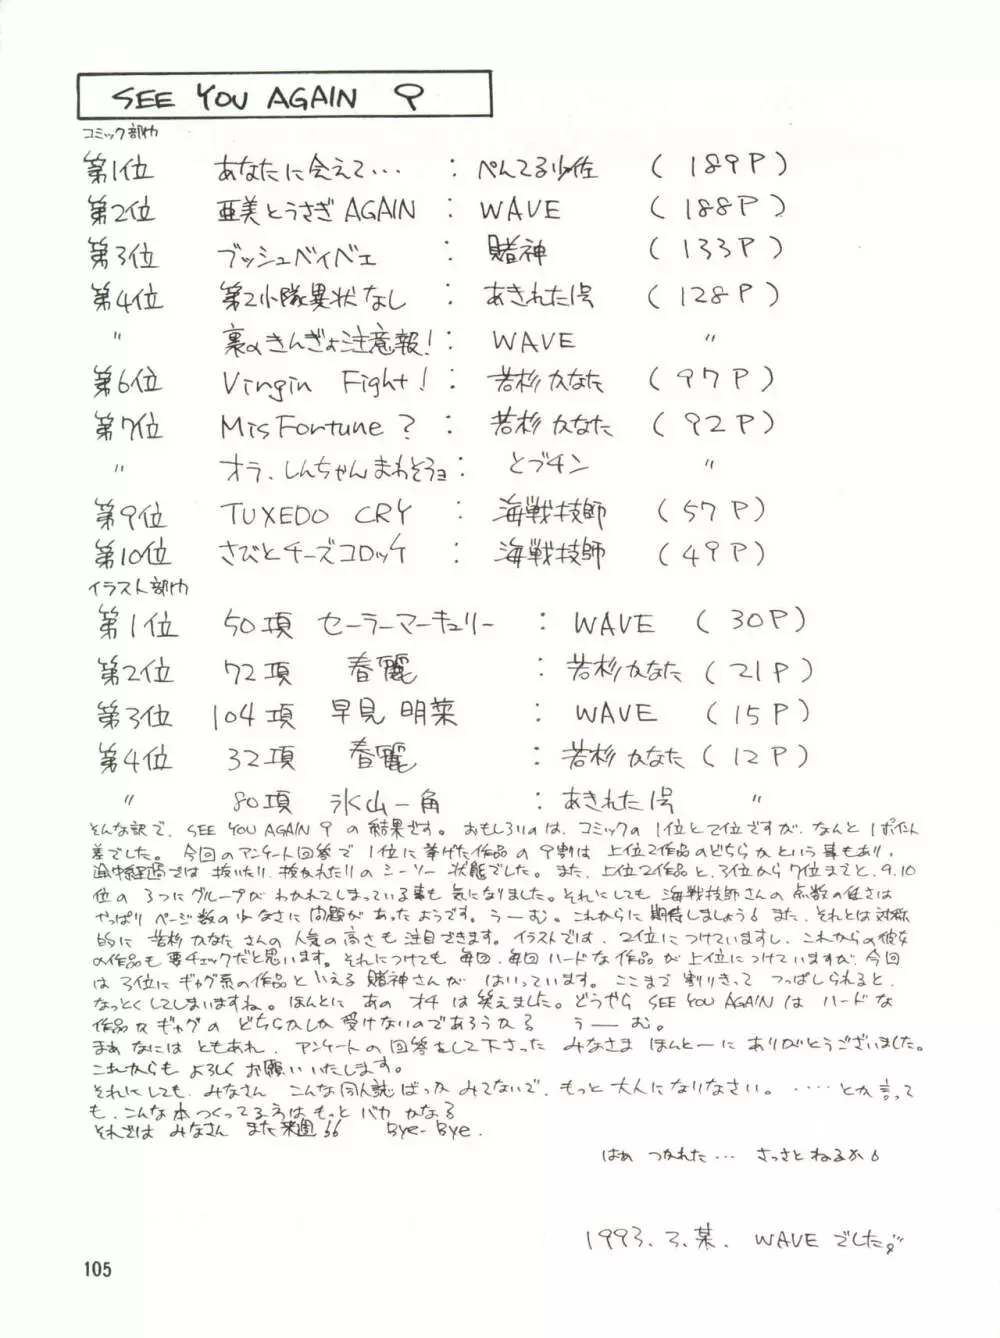 SEE YOU AGAIN 9
コミック部門
第1位 あなたに会えて・・・ : ぺんてる少佐 (189P)
第2位 亜美とうさぎ AGAIN : WAVE (188P)
第3位 ブッシュベイベェ : 賭神 (133P)
第4位 第2小隊異状なし : あきれた1号 (128P)
〃 裏のきんぎょ注意報! : WAVE 〃
第6位 Virgin Fight! : 若杉かなた (97P)
第7位 MisFortune? : 若杉かなた (92P)
〃 オラ、しんちゃんまわそうョ : とブチン 〃
第9位 TUXEDO CRY : 海戦技師 (57P)
第10位 さびとチーズコロッケ : 海戦技師 (49P)
イラスト部門
第1位 50項 セーラーマーキュリー : WAVE (30P)
第2位 72項 春麗 : 若杉かなた (21P)
第3位 104項 早見 明菜 : WAVE (15P)
第4位 32項 春麗 : 若杉かなた (12P)
〃 80項 氷山一角 : あきれた1号 〃
そんな訳で、SEE YOU AGAIN 9 の結果です。おもしろいのは、コミックの1位と2位ですが、なんと1ポイント
差でした。今回のアンケート回答で1位に挙げた作品の9割は上位2作品のどちらかという事もあり、
途中経過では抜いたり、抜かれたりのシーソー状態でした。また、上位2作品と、3位から7位までと、9,10
位の3つにグループがわかれてしまっている事も気になりました。それにしても海戦技師さんの点数の低さは
やっぱりページ数の少なさに問題があったようです。うーむ。これからに期待しましょう。また、それとは対称
的に若杉かなたさんの人気の高さも注目できます。イラストでは、2位につけていますし、これからの彼女
の作品も要チェックだと思います。それにつけても毎回、毎回ハードな作品が上位につけていますが、今回
は3位にギャグ系の作品といえる賭神さんがはいっています。ここまで割りきってつっぱしられると、
なっとくしてしまいますね。ほんとにあのオチは笑えました。どうやらSEE YOU AGAINはハードな
作品かギャグのどちらかしか受けないのであろうかる うーむ。
まぁなにはともあれ、アンケートの回答をして下さったみなさまほんとーにありがとうございました。
これからもよろしくお願いいたします。
それにしても、みなさん こんな同人誌ばっかみてないで、もっと大人になりなさい。・・・・とか言って
も、こんな本つくってる方はもっとバカかなる
それではみなさん また来週 Bye-Bye.
はぁ つかれた… さっさとねるか。
1993.3.某. WAVEでした。
105